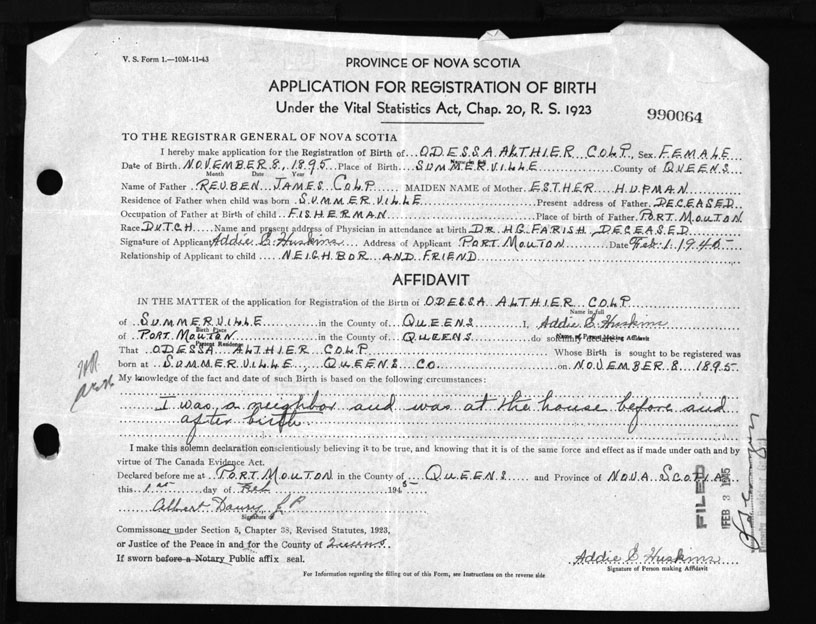 V. S. Form 1.—10M-11-43
PROVINCE OF NOVA SCOTIA
APPLICATION FOR REGISTRATION OF BIRTH
Under the Vital Statistics Act, Chap. 20, R. S. 1923
990064
TO THE REGISTRAR GENERAL OF NOVA SCOTIA
I hereby make application for the Registration of Birth of ODESSA ALTHIER COLP, Sex FEMALE
Date of Birth NOVEMBER 8, 1895 Place of Birth SUMMERVILLE County of QUEENS
Month Date Year
Name of Father REUBEN JAMES COLP MAIDEN NAME of Mother ESTHER HUPMAN
Residence of Father when child was born SUMMERVILLE Present address of Father DECEASED
Occupation of Father at Birth of child FISHERMAN Place of birth of Father PORT MOUTON
Race DUTCH Name and present address of Physician in attendance at birth DR HG FARISH, DECEASED
Signature of Applicant Addie E Huskins Address of Applicant PORT MOUTON Date Feb. 1. 1945
Relationship of Applicant to child NEIGHBOR AND FRIEND
AFFIDAVIT
IN THE MATTER of the application for Registration of the Birth of ODESSA ALTHIER COLP
Name in full
of SUMMERVILLE in the County of QUEENS I, Addie E. Huskins
Birth Place Name of Person making Affidavit
of PORT MOUTON in the County of QUEENS do solemnly declare
Present Residence
That ODESSA ALTHIER COLP Whose Birth is sought to be registered was
born at SUMMERVILLE, QUEENS CO. on NOVEMBER 8 1895
My knowledge of the fact and date of such Birth is based on the following circumstances:
I was a neighbor and was at the house before and
after birth.
I make this solemn declaration conscientiously believing it to be true, and knowing that it is of the same force and effect as if made under oath and by
virtue of The Canada Evidence Act.
Declared before me at PORT MOUTON in the County of QUEENS and Province of NOVA SCOTIA
this 1st day of Feb 1945
Albert Daury J P
Signature of
Commissioner under Section 5, Chapter 38, Revised Statutes, 1923,
or Justice of the Peace in and for the County of Queens.
If sworn before a Notary Public affix seal.
Addie E Huskins
Signature of Person making Affidavit
For Information regarding the filling out of this Form, see Instructions on the reverse side
FILED
FEB 3 1945